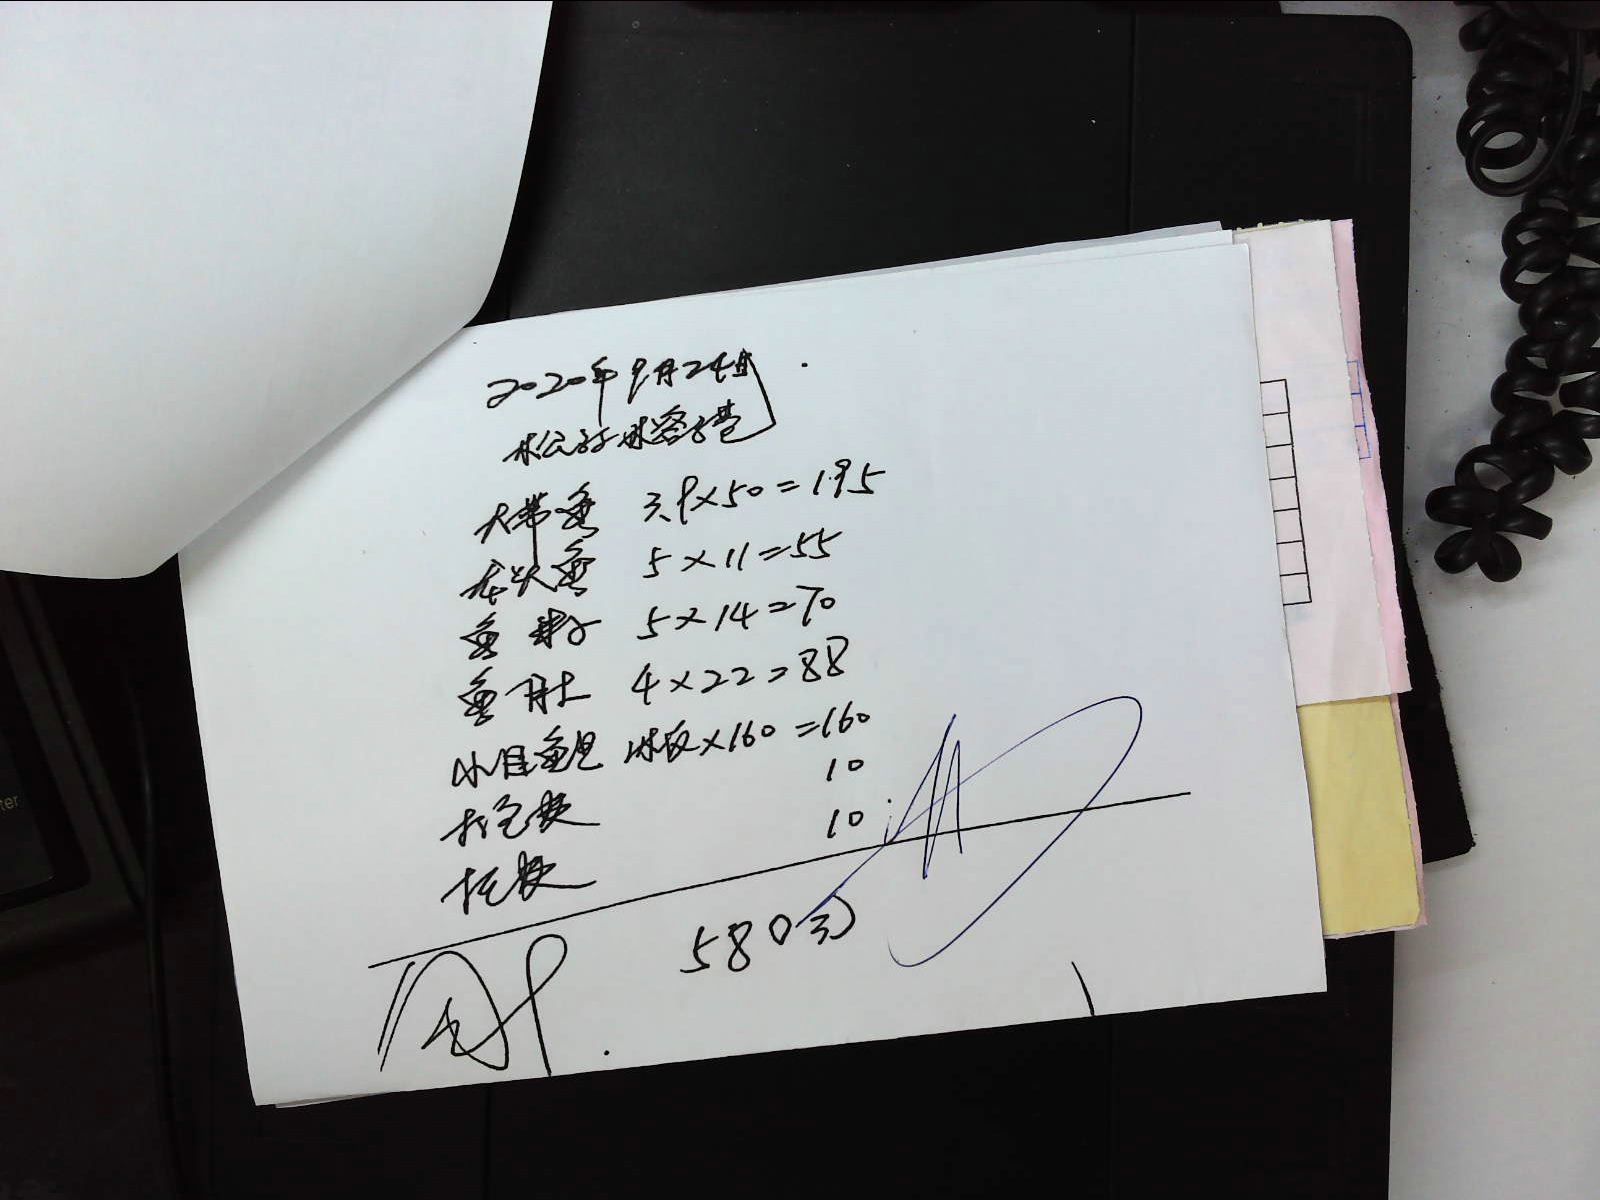 2020年9月24日
大带鱼 3.9×50=195
龙头鱼 5×11=55
鱼籽 5×14=70
鱼肚 4×22=88
小目鱼 ×160=160
打包费 10
托费 10
580
ter